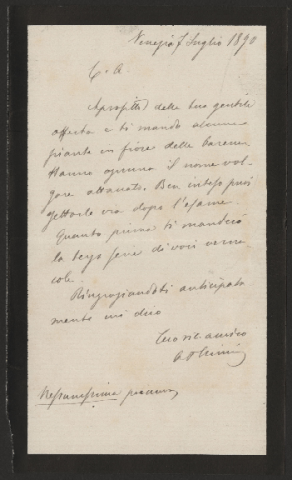 Venezia 7 Luglio 1890
C. A.
Approfitto della tua gentile
offerta e ti mando alcune
piante in fiore delle barene.
Hanno ognuna il nome vol-
gare attaccato. Ben inteso puoi
gettarle via dopo l'esame.
Quanto prima ti manderò
la terza serie di voci verna
cole.
Ringraziandoti anticipata
mente mi dico
Tuo vec. amico